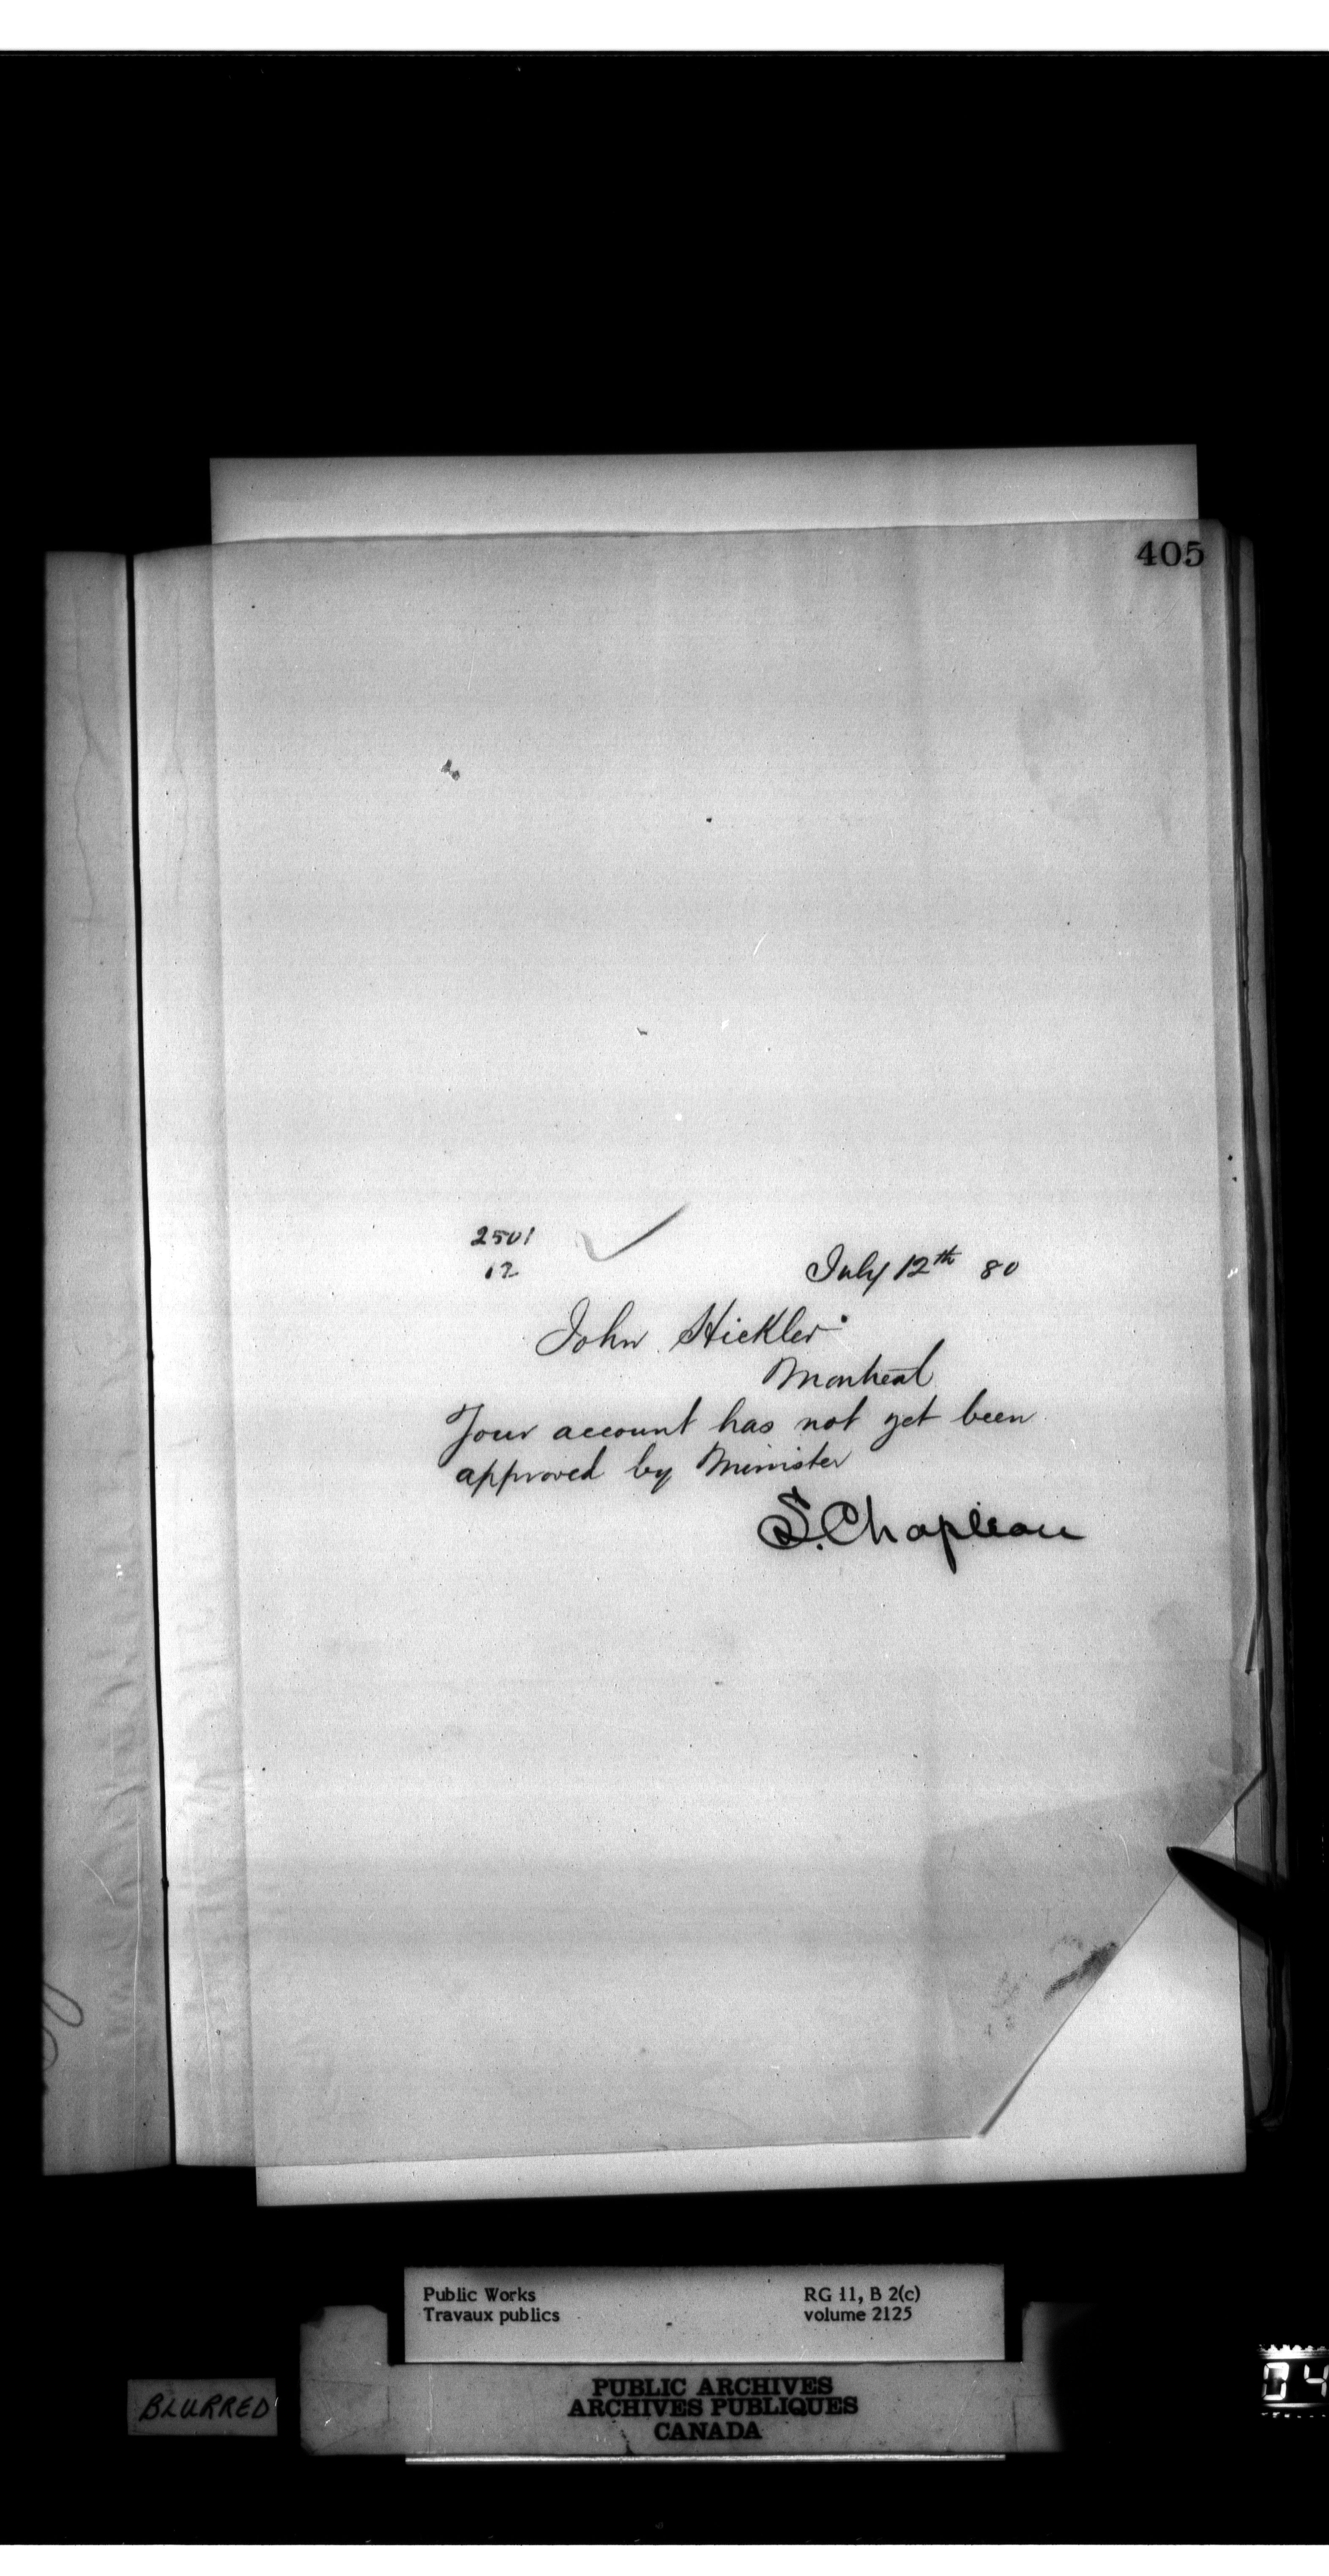 405
2501
12
July 12th 80
John Hickler
Montreal
Your account has not yet been
approved by Minister
S. Chapleau
Public Works
Travaux publics
RG 11, B 2(c)
volume 2125
PUBLIC ARCHIVES
ARCHIVES PUBLIQUES
CANADA
BLURRED
04